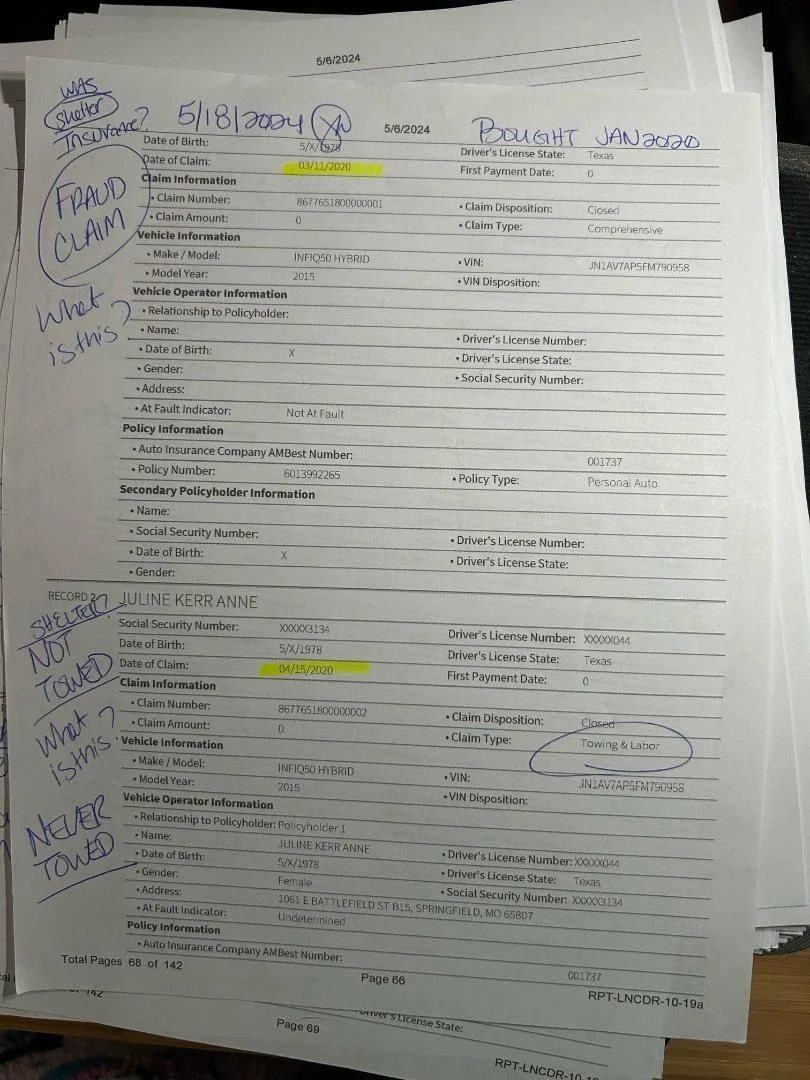 5/6/2024
WAS
shelter
Insurance?
5/18/2024
5/6/2024
BOUGHT JAN 2020
Date of Birth: 5/X/1978 Driver's License State: Texas
Date of Claim: 03/11/2020 First Payment Date: 0
FRAUD
CLAIM
Claim Information
• Claim Number: 8677651800000001 • Claim Disposition: Closed
• Claim Amount: 0 • Claim Type: Comprehensive
Vehicle Information
• Make / Model: INFIQ50 HYBRID • VIN: JN1AV7AP5FM790958
• Model Year: 2015 • VIN Disposition:
What
is this?
Vehicle Operator Information
• Relationship to Policyholder:
• Name: • Driver's License Number:
• Date of Birth: X • Driver's License State:
• Gender: • Social Security Number:
• Address:
• At Fault Indicator: Not At Fault
Policy Information
• Auto Insurance Company AMBest Number: 001737
• Policy Number: 6013992265 • Policy Type: Personal Auto
Secondary Policyholder Information
• Name:
• Social Security Number: • Driver's License Number:
• Date of Birth: X • Driver's License State:
• Gender:
RECORD 2 JULINE KERR ANNE
SHELTER?
NOT
TOWED
Social Security Number: XXXXX3134 Driver's License Number: XXXXX044
Date of Birth: 5/X/1978 Driver's License State: Texas
Date of Claim: 04/15/2020 First Payment Date: 0
Claim Information
• Claim Number: 8677651800000002 • Claim Disposition: Closed
• Claim Amount: 0 • Claim Type: Towing & Labor
What
is this?
Vehicle Information
• Make / Model: INFIQ50 HYBRID • VIN: JN1AV7AP5FM790958
• Model Year: 2015 • VIN Disposition:
NEVER
TOWED
Vehicle Operator Information
• Relationship to Policyholder: Policyholder 1
• Name: JULINE KERR ANNE • Driver's License Number: XXXXX044
• Date of Birth: 5/X/1978 • Driver's License State: Texas
• Gender: Female • Social Security Number: XXXXX3134
• Address: 1061 E BATTLEFIELD ST B15, SPRINGFIELD, MO 65807
• At Fault Indicator: Undetermined
Policy Information
• Auto Insurance Company AMBest Number: 001737
Total Pages 68 of 142 Page 66 RPT-LNCDR-10-19a
142
Driver's License State:
Page 69
RPT-LNCDR-10